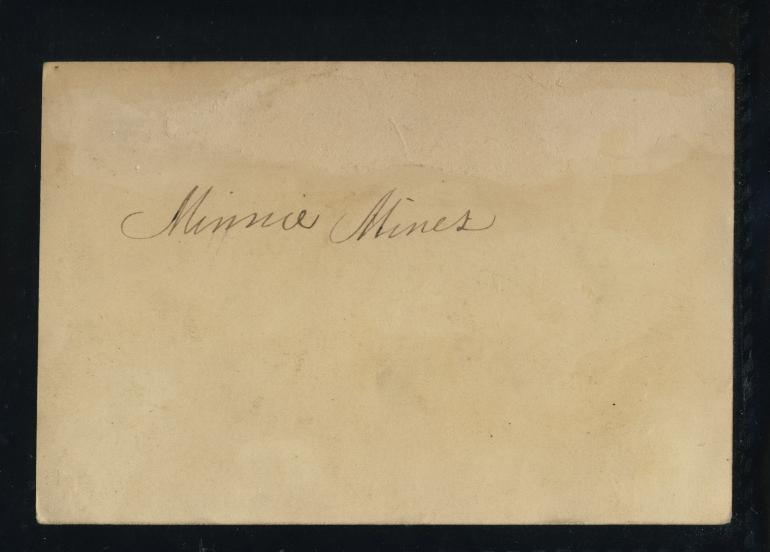 Minnie Mines